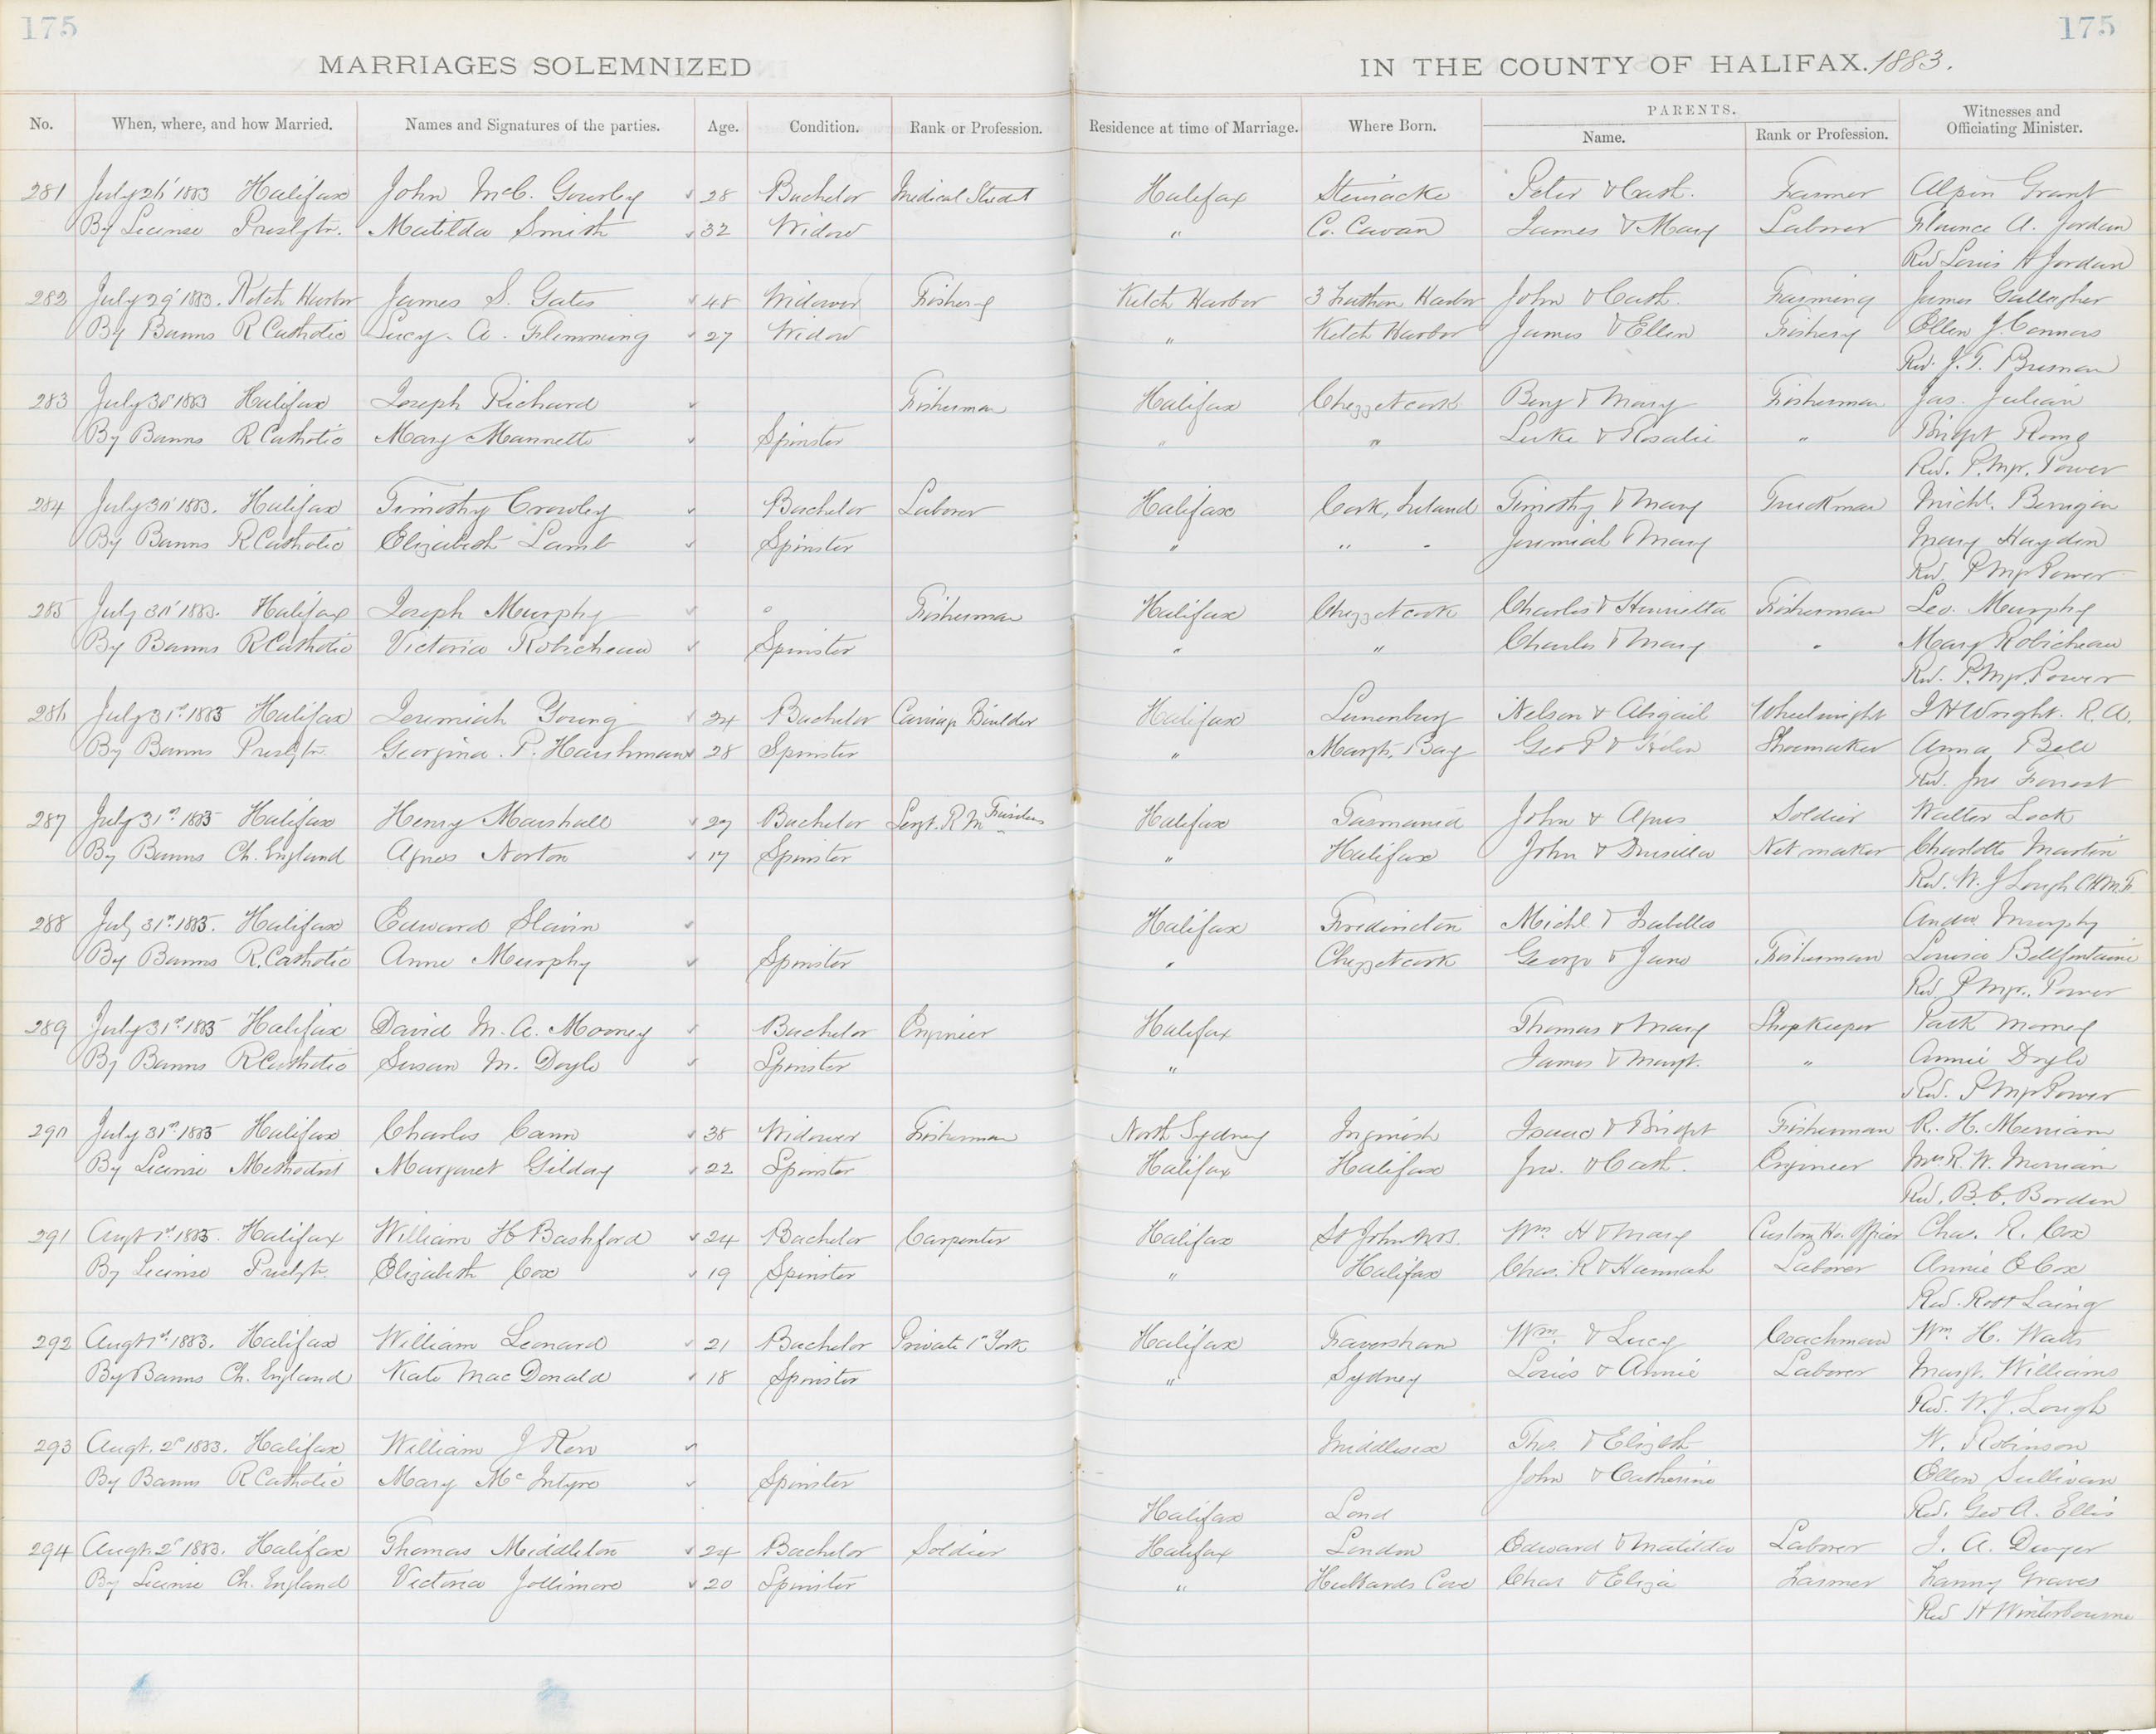 175
175
MARRIAGES SOLEMNIZED IN THE COUNTY OF HALIFAX. 1883.
No. When, where, and how Married. Names and Signatures of the parties. Age. Condition. Rank or Profession. Residence at time of Marriage. Where Born. PARENTS. Name. Rank or Profession. Witnesses and Officiating Minister.
281 July 26' 1883 Halifax John McC. Gourley 28 Bachelor Medical Studt Halifax Stewiacke Peter & Cath. Farmer Alpin Grant
By License Presbytn. Matilda Smith 32 Widow " Co. Cavan James & Mary Laborer Florence A. Jordan
Revd Louis H Jordan
282 July 29' 1883. Ketch Harbor James S. Gates 48 Widower Fishery Ketch Harbor 3 Fathom Harbor John & Cath. Farming James Gallagher
By Banns R Catholic Lucy A. Flemming 27 Widow " Ketch Harbor James & Ellen Fishery Ellen J. Connors
Rev. J. T.
283 July 30' 1883 Halifax Joseph Richard Fisherman Halifax Chezzetcook Benj & Mary Fisherman Jas. Julian
By Banns R Catholic Mary Mannette Spinster " " Luke & Rosalie " Bridgt
Rev. P. Power
284 July 30' 1883. Halifax Timothy Crowley Bachelor Laborer Halifax Cork, Ireland Timothy & Mary Truckman Michl. Berrigan
By Banns R Catholic Elizabeth Lamb Spinster " " " Jeremiah & Mary Mary Hayden
Rev. P Power
285 July 30' 1883. Halifax Joseph Murphy Fisherman Halifax Chezzetcook Charles & Henrietta Fisherman Leo. Murphy
By Banns R Catholic Victoria Robicheau Spinster " " Charles & Mary " Mary Robicheau
Rev. P. Power
286 July 31st 1883 Halifax Jeremiah Young 24 Bachelor Carriage Builder Halifax Lunenburg Nelson & Abigail Wheelwright J H Wright. R.A.
By Banns Presbytn. Georgina P. Harshman 28 Spinster " Margts. Bay Geo P & Helen Shoemaker Anna Bell
Rev. Jno Forrest
287 July 31st 1883 Halifax Henry Marshall 27 Bachelor Sergt. R M Fusiliers Halifax Tasmania John & Agnes Soldier Walter Lock
By Banns Ch. England Agnes Norton 17 Spinster " Halifax John & Drusilla Net maker Charlotte Martin
Rev. W. J Lough C H M. F
288 July 31st 1883. Halifax Edward Slavin Halifax Fredericton Michl & Isabella Andw Murphy
By Banns R. Catholic Anne Murphy Spinster " Chezzetcook George & Jane Fisherman Louisa Bellfontaine
Rev. P Power
289 July 31st 1883 Halifax David M. A. Mooney Bachelor Engineer Halifax Thomas & Mary Shopkeeper Patk Mooney
By Banns R Catholic Susan M. Doyle Spinster " James & Margt. " Annie Doyle
Rev. P Power
290 July 31st 1883 Halifax Charles Cann 38 Widower Fisherman North Sydney Ingonish Isaac & Bridgt Fisherman R. H. Merriam
By License Methodist Margaret Gilday 22 Spinster Halifax Halifax Jno. & Cath. Engineer Mrs R. W. Merriam
Rev. B. C. Borden
291 Augt 1st 1883. Halifax William H Bashford 24 Bachelor Carpenter Halifax St John N.B. Wm H & Mary Custom Ho. Officer Chas. R. Cox
By License Presbytn Elizabeth Cox 19 Spinster " Halifax Chas. R & Hannah Laborer Annie E Cox
Rev. Robt Laing
292 Augt 1st 1883. Halifax William Leonard 21 Bachelor Private 1st York Halifax Faversham Wm. & Lucy Coachman Wm. H. Watts
By Banns Ch. England Kate MacDonald 18 Spinster " Sydney Louis & Annie Laborer Margt. Williams
Rev. W. J. Lough
293 Augt. 2d 1883. Halifax William J Middlesex Thos. & Elizbth W. Robinson
By Banns R Catholic Mary McIntyre Spinster John & Catherine Ellen Sullivan
Halifax Lond Rev. Geo A. Ellis
294 Augt. 2d 1883. Halifax Thomas Middleton 24 Bachelor Soldier Halifax London Edward & Matilda Laborer J. A. Dwyer
By License Ch. England Victoria Jollimore 20 Spinster " Hubbards Cove Chas & Eliza Farmer Fanny Graves
Rev H Winterbourne